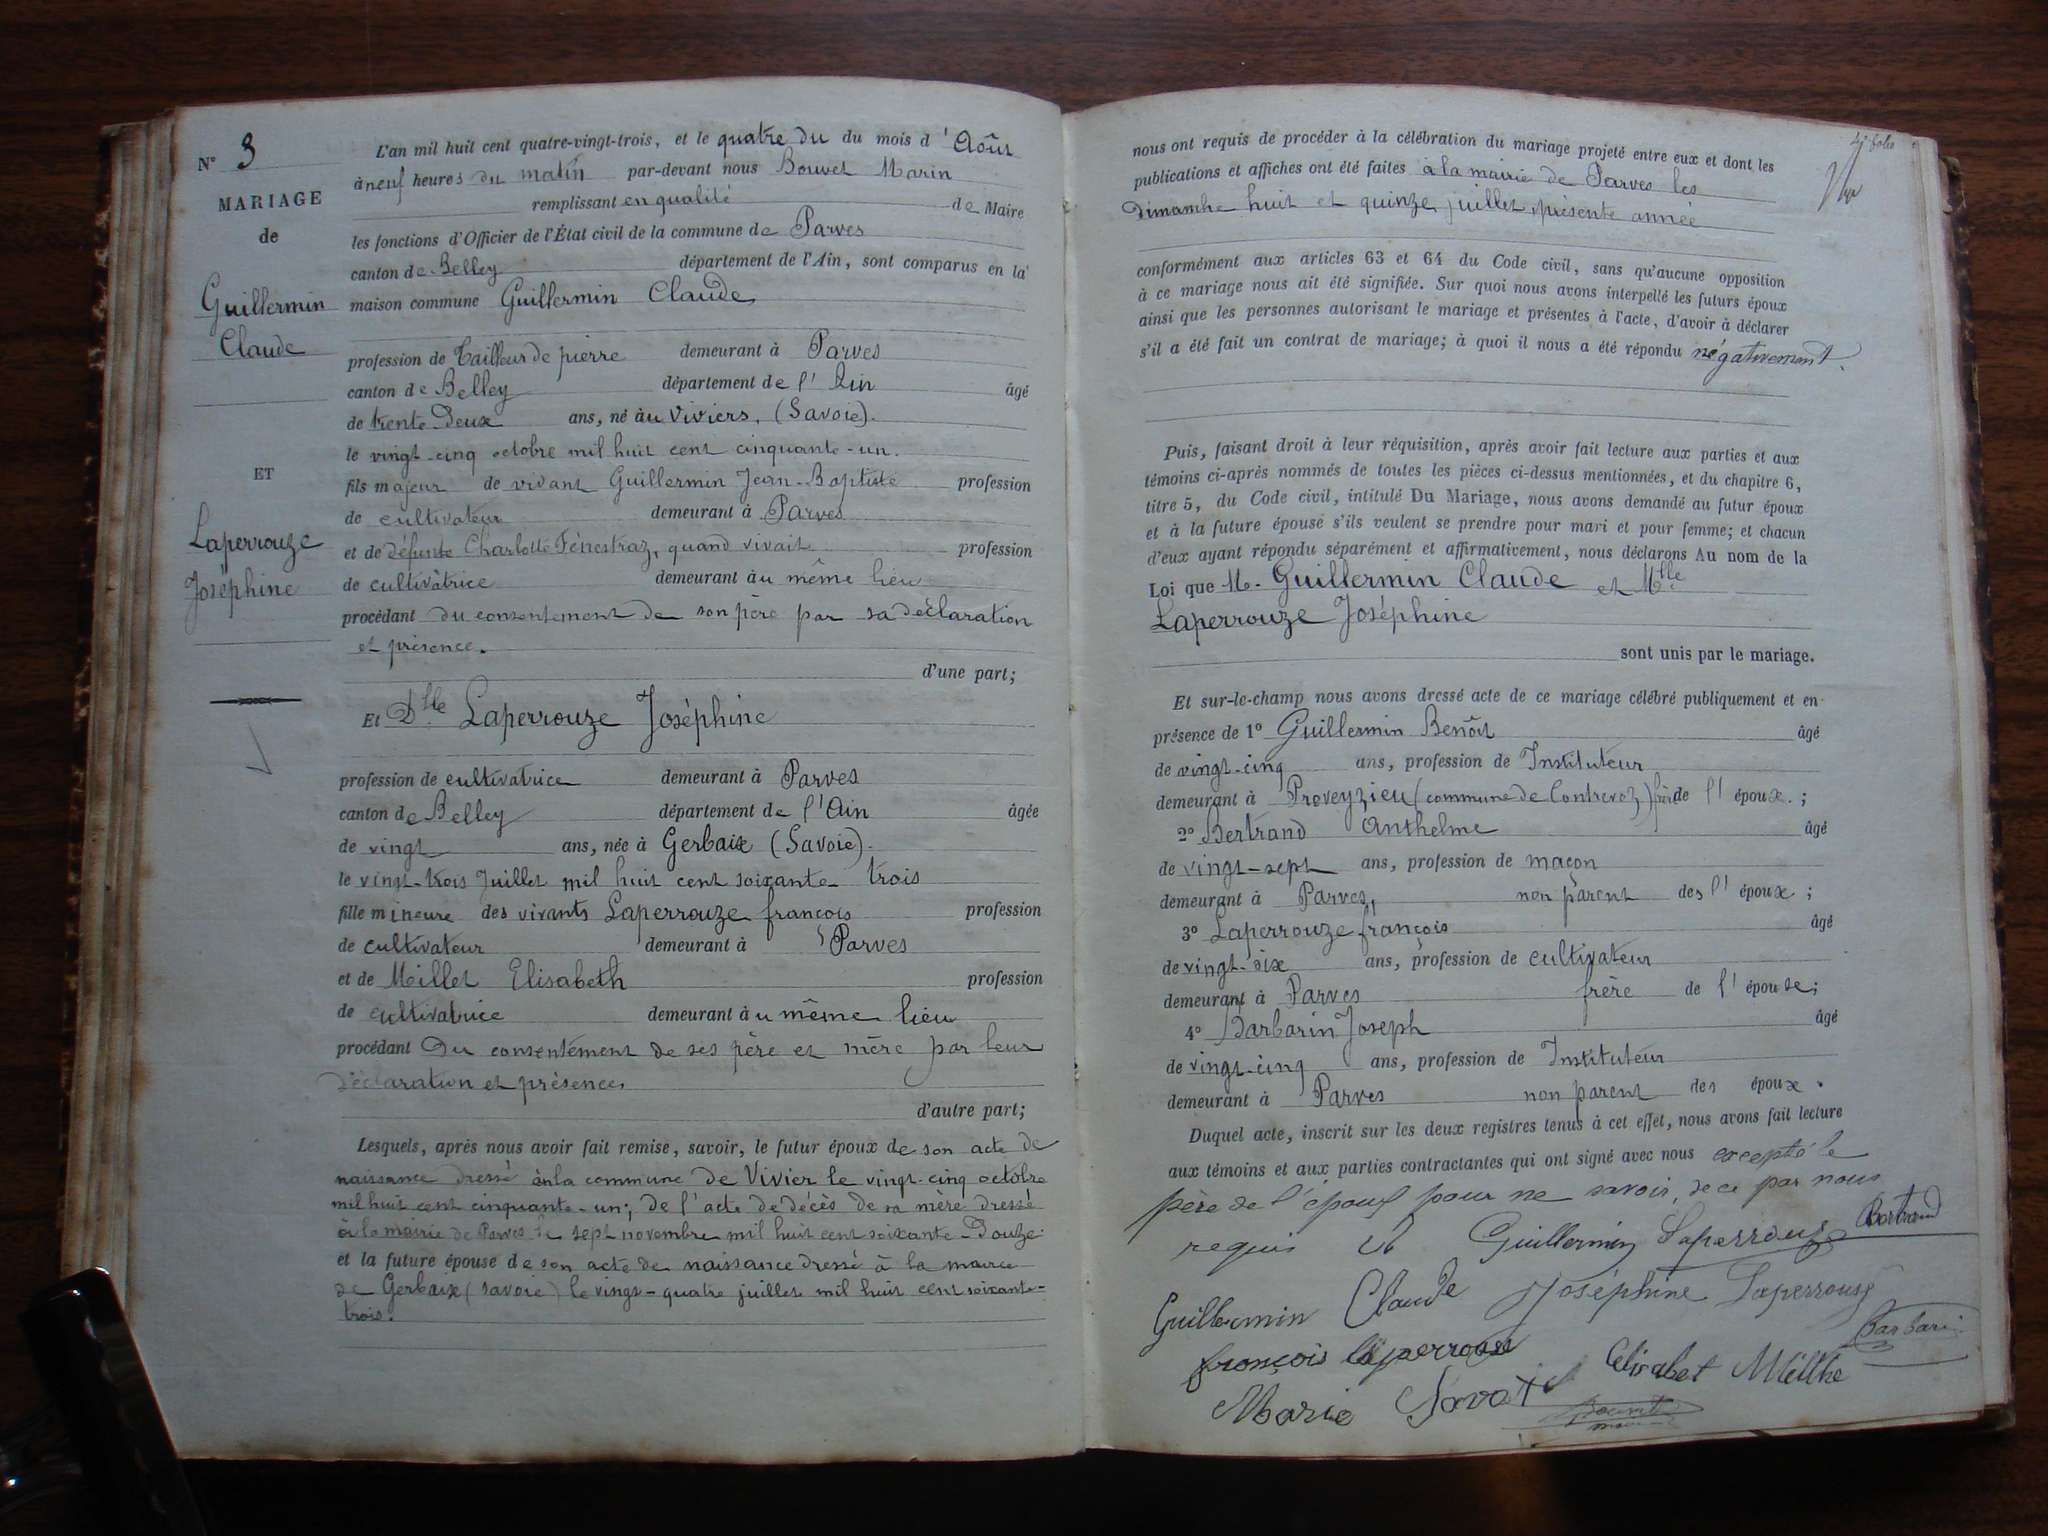 N° 3
MARIAGE
de
Guillermin
Claude
ET
Laperrouze
Joséphine
L'an mil huit cent quatre-vingt-trois, et le quatre du du mois d'Août
à neuf heures du matin par-devant nous Bouvet Marin
remplissant en qualité de Maire
les fonctions d'Officier de l'État civil de la commune de Parves
canton de Belley département de l'Ain, sont comparus en la
maison commune Guillermin Claude
profession de Tailleur de pierre demeurant à Parves
canton de Belley département de l'Ain âgé
de trente Deux ans, né à u Viviers, (Savoie).
le vingt-cinq octobre mil huit cent cinquante-un.
fils majeur de vivant Guillermin Jean-Baptiste profession
de cultivateur demeurant à Parves
et de défunte Charlotte Fénestraz, quand vivait profession
de cultivatrice demeurant à u même lieu
procédant du consentement de son père par sa déclaration
et présence.
d'une part;
Et Dlle Laperrouze Joséphine
profession de cultivatrice demeurant à Parves
canton de Belley département de l'Ain âgée
de vingt ans, née à Gerbaix (Savoie).
le vingt-trois Juillet mil huit cent soixante-trois
fille mineure des vivants Laperrouze françois profession
de cultivateur demeurant à Parves
et de Meillet Elisabeth profession
de cultivatrice demeurant à u même lieu
procédant Du consentement de ses père et mère par leur
déclaration et présences
d'autre part;
Lesquels, après nous avoir fait remise, savoir, le futur époux de son acte de
naissance dressé à la commune de Vivier le vingt-cinq octobre
mil huit cent cinquante-un; de l'acte de décès de sa mère dressé
à la mairie de Parves le sept novembre mil huit cent soixante-Douze
et la future épouse de son acte de naissance dressé à la mairie
de Gerbaix (Savoie) le vingt-quatre juillet mil huit cent soixante-
trois.
4e folio
nous ont requis de procéder à la célébration du mariage projeté entre eux et dont les
publications et affiches ont été faites à la mairie de Parves les
dimanche huit et quinze juillet, présente année
conformément aux articles 63 et 64 du Code civil, sans qu'aucune opposition
à ce mariage nous ait été signifiée. Sur quoi nous avons interpellé les futurs époux
ainsi que les personnes autorisant le mariage et présentes à l'acte, d'avoir à déclarer
s'il a été fait un contrat de mariage; à quoi il nous a été répondu négativement.
Puis, faisant droit à leur réquisition, après avoir fait lecture aux parties et aux
témoins ci-après nommés de toutes les pièces ci-dessus mentionnées, et du chapitre 6,
titre 5, du Code civil, intitulé Du Mariage, nous avons demandé au futur époux
et à la future épouse s'ils veulent se prendre pour mari et pour femme; et chacun
d'eux ayant répondu séparément et affirmativement, nous déclarons Au nom de la
Loi que M. Guillermin Claude et Mlle
Laperrouze Joséphine
sont unis par le mariage.
Et sur-le-champ nous avons dressé acte de ce mariage célébré publiquement et en
présence de 1° Guillermin Benoît âgé
de vingt-cinq ans, profession de Instituteur
demeurant à Proveyzieu (commune de Contrevoz) frère de l'époux.;
2° Bertrand Anthelme âgé
de vingt-sept ans, profession de maçon
demeurant à Parves, non parent des l'époux;
3° Laperrouze françois âgé
de vingt-six ans, profession de cultivateur
demeurant à Parves frère de l'épouse;
4° Barbarin Joseph âgé
de vingt-cinq ans, profession de Instituteur
demeurant à Parves non parent des époux.
Duquel acte, inscrit sur les deux registres tenus à cet effet, nous avons fait lecture
aux témoins et aux parties contractantes qui ont signé avec nous excepté le
père de l'époux pour ne savoir, de ce par nous
requis
Guillermin Laperrouze Bertrand
Guillermin Claude Joséphine Laperrouze
françois laperrouse Barbari
Elisabet Meillhe
Marie Savot